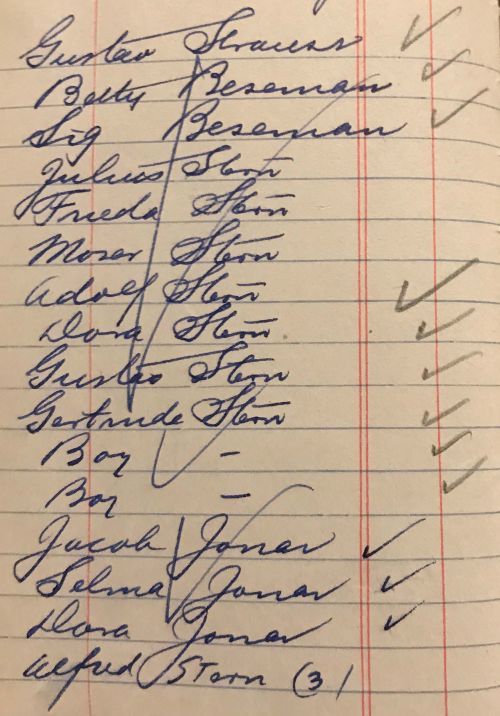 Gustav Strauss
Betty Beseman
Sig Beseman
Julius Stern
Frieda Stern
Moser Stern
Adolf Stern
Dora Stern
Gustav Stern
Gertrude Stern
Boy -
Boy -
Jacob Jonas
Selma Jonas
Dora Jonas
Alfred Stern (3)